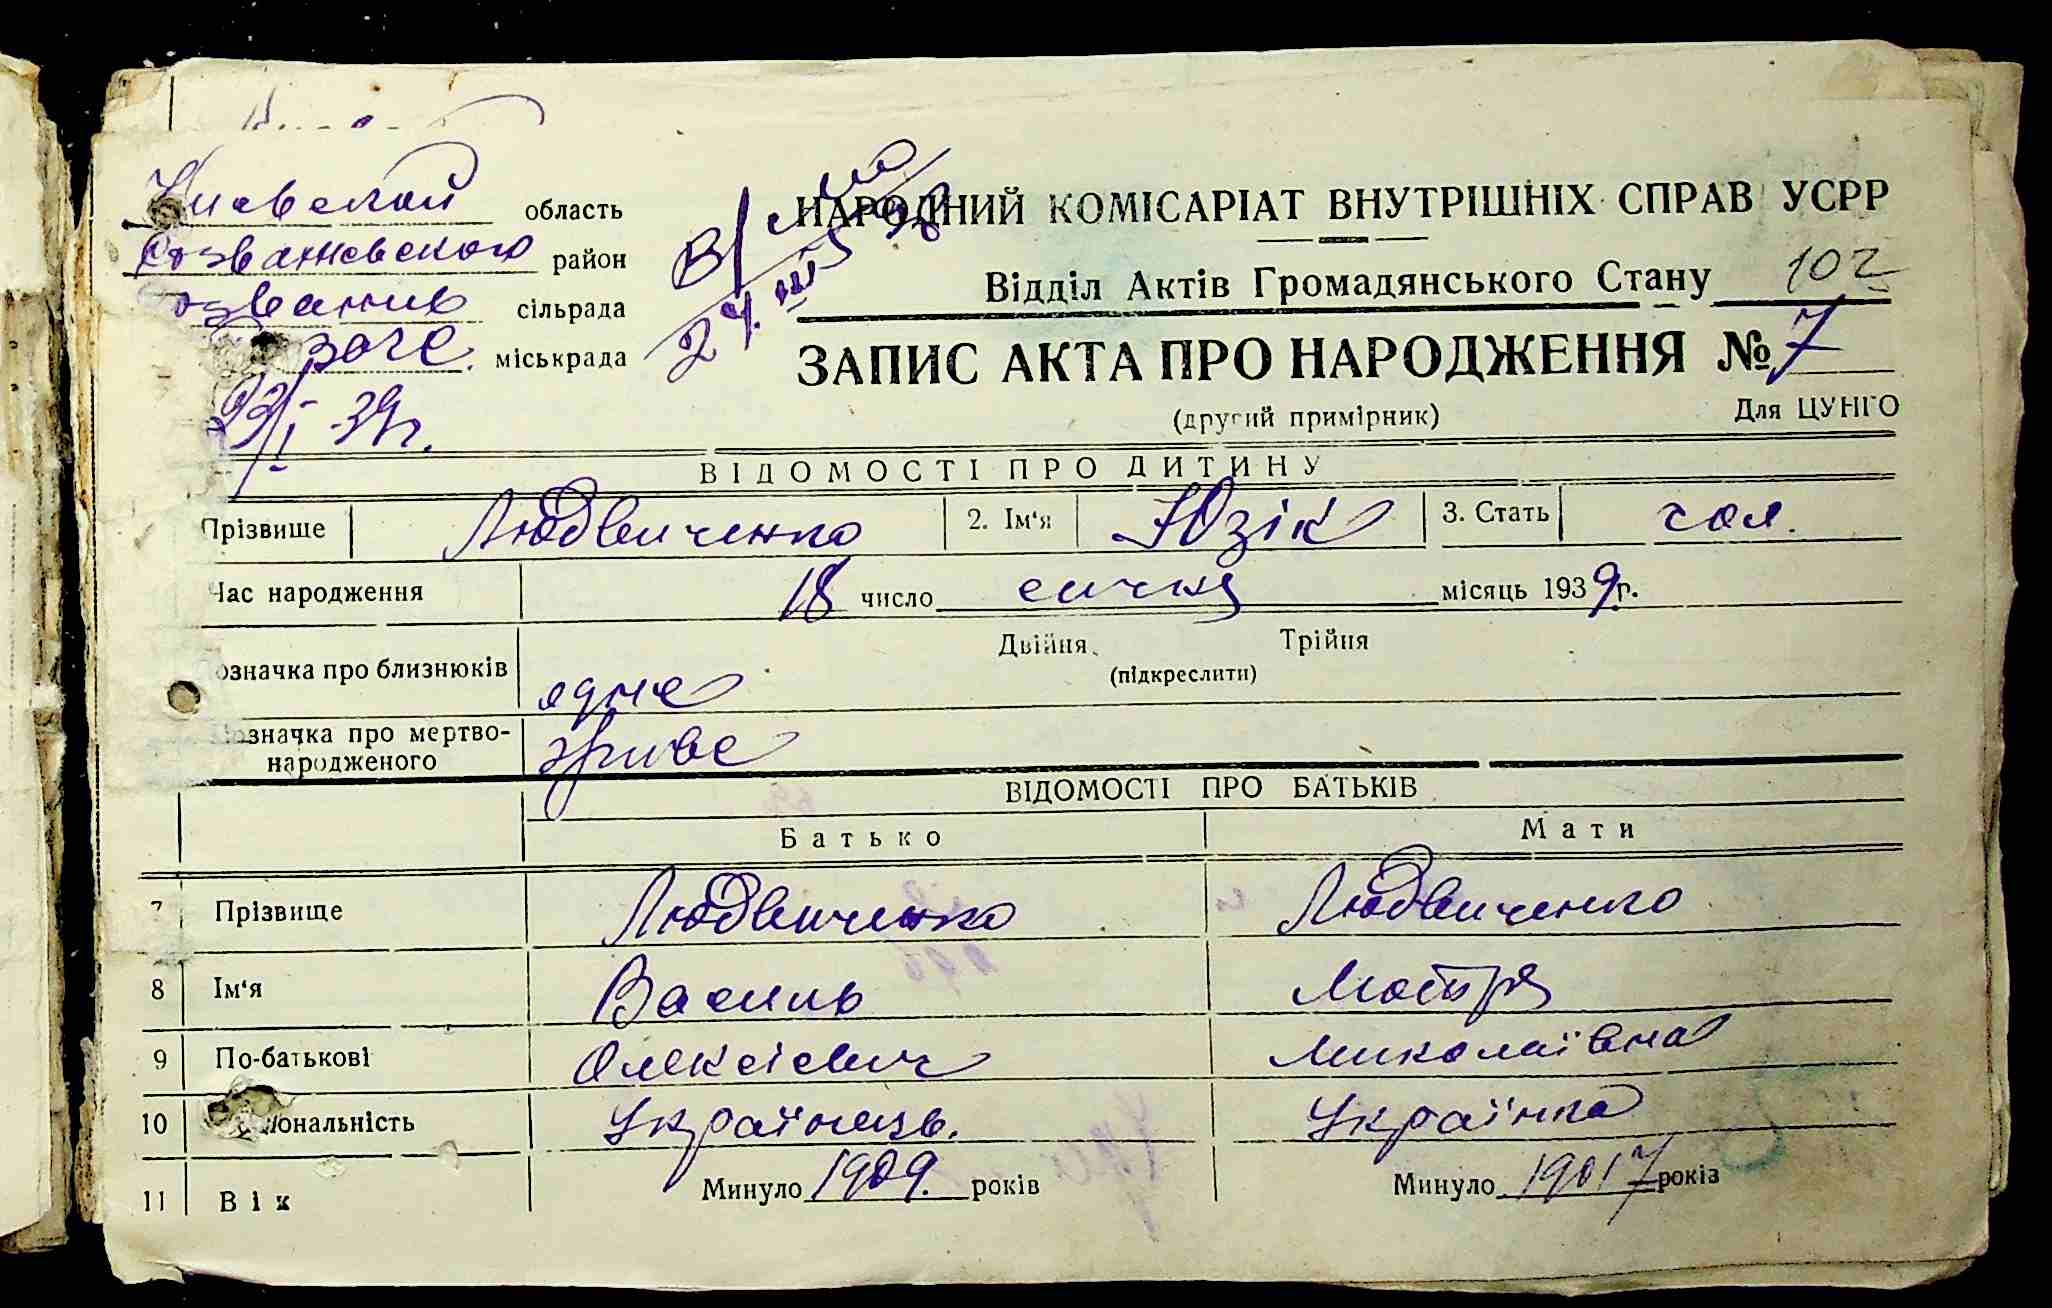 Киевской область
Розважевского район
сільрада
міськрада
НАРОДНИЙ КОМІСАРІАТ ВНУТРІШНІХ СПРАВ УСРР
Відділ Актів Громадянського Стану 102
24.III
ЗАПИС АКТА ПРО НАРОДЖЕННЯ № 7
(другий примірник) Для ЦУНГО
23/I-39г.
ВІДОМОСТІ ПРО ДИТИНУ
Прізвище Людвиченко 2. Ім'я Юзік 3. Стать чол.
Час народження 18 число січня місяць 1939 р.
означка про близнюків Двійня Трійня
(підкреслити)
одне
означка про мертво-
народженого живе
ВІДОМОСТІ ПРО БАТЬКІВ
Батько Мати
7 Прізвище Людвиченко Людвиченко
8 Ім'я Василь Мотря
9 По-батькові Олексієвич Миколаївна
10 іональність Українець. Українка
11 Вік Минуло 1909. років Минуло років